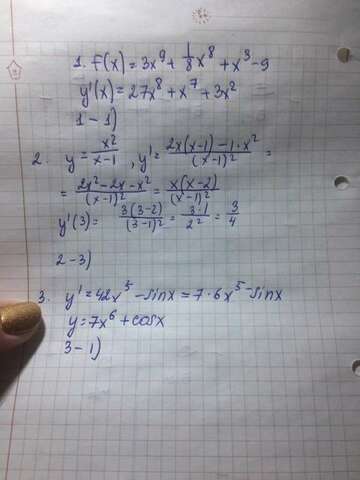 1. f(x) = 3x⁹ + 1/8 x⁸ + x³ - 9
y'(x) = 27x⁸ + x⁷ + 3x²
1 - 1)
2. y = x²/(x-1), y' = (2x(x-1) - 1·x²)/(x-1)² =
= (2x² - 2x - x²)/(x-1)² = x(x-2)/(x-1)²
y'(3) = 3(3-2)/(3-1)² = 3·1/2² = 3/4
2 - 3)
3. y' = 42x⁵ - sinx = 7·6x⁵ - sinx
y = 7x⁶ + cosx
3 - 1)